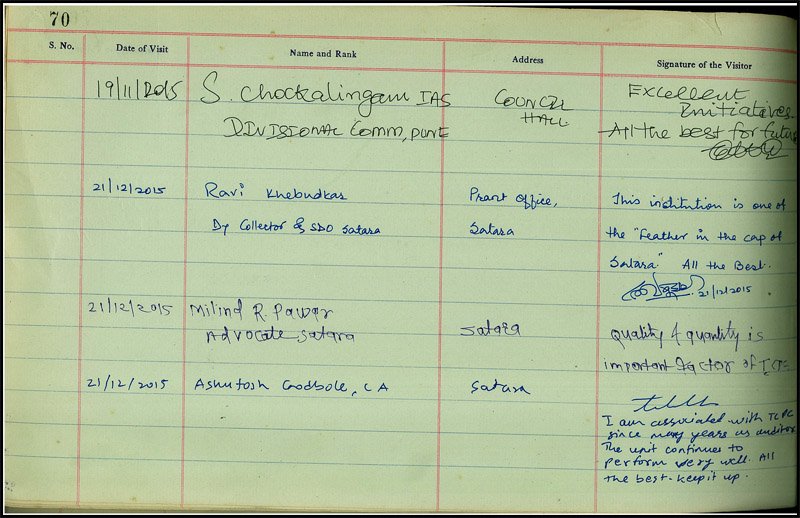 70
S. No. Date of Visit Name and Rank Address Signature of the Visitor
19/11/2015 S. Chockalingam IAS COUNCIL Excellent
DIVISIONAL COMM, PUNE HALL Initiatives.
All the best for future
21/12/2015 Ravi Khebudkar Prant office, This institution is one of
Dy Collector & SDO Satara Satara the "Feather in the cap of
Satara" All the Best.
21/12/2015
21/12/2015 Milind R. Pawar satara Quality & quantity is
Advocate, satara important factor of
21/12/2015 Ashutosh Godbole, CA Satara
I am associated with TCPC
since many years as auditor
The unit continues to
perform very well. All
the best. keep it up.